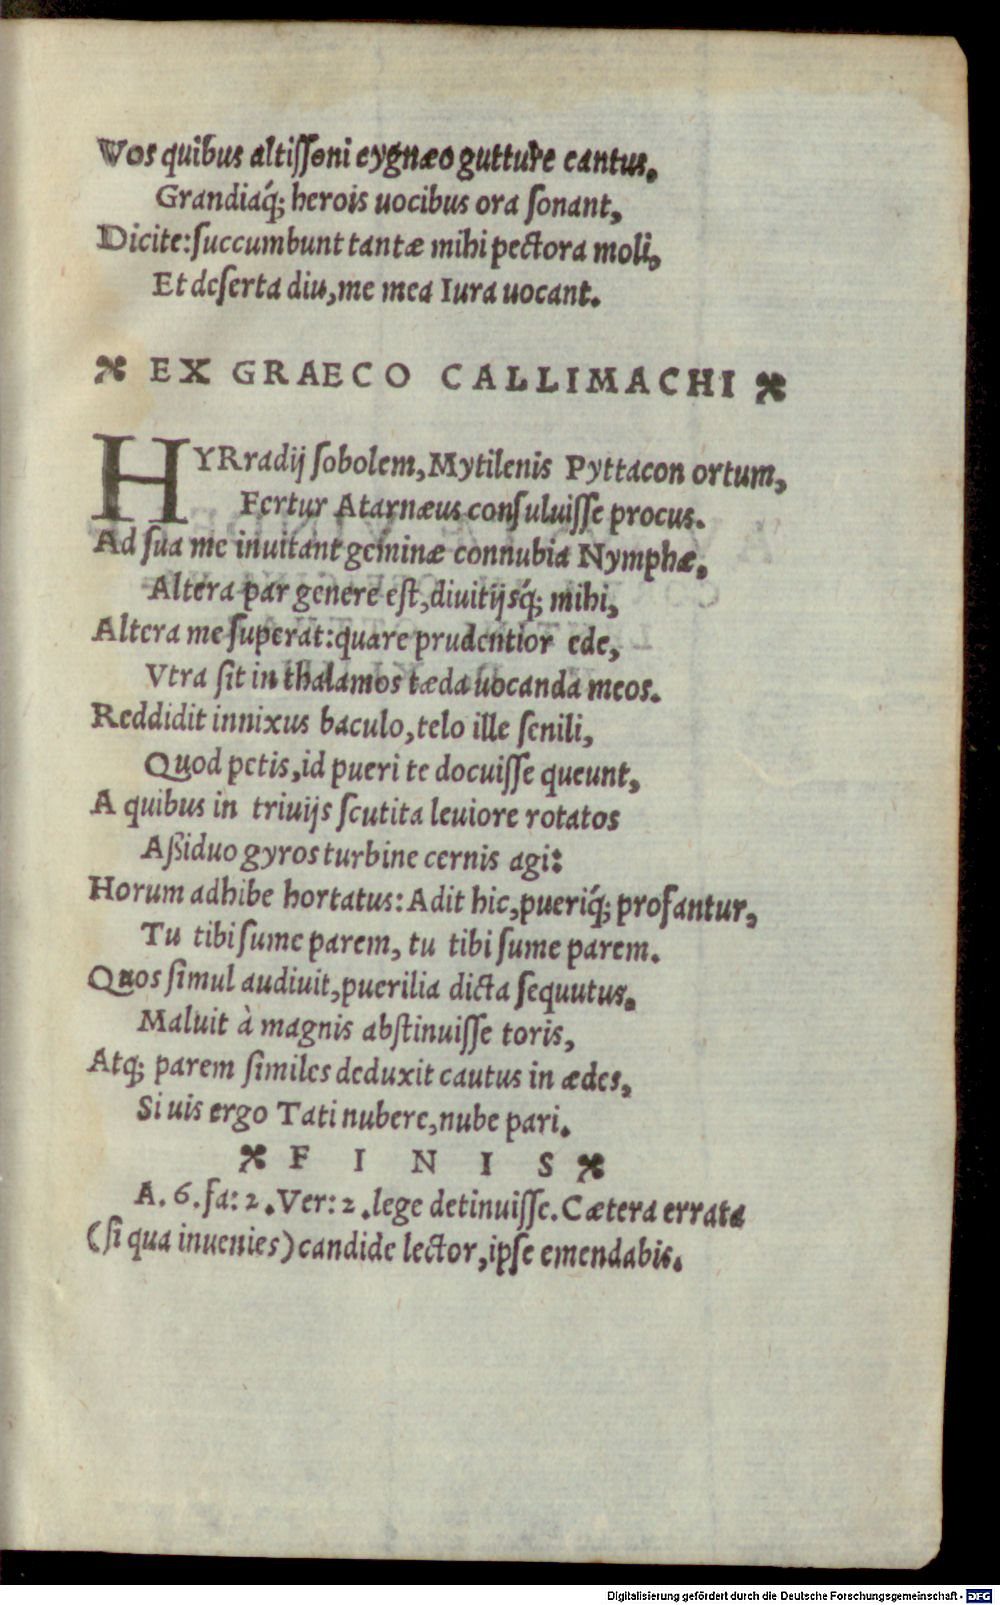 Vos quibus altiſſoni cygnæo gutture cantus,
Grandiaq́; herois uocibus ora ſonant,
Dicite: ſuccumbunt tantæ mihi pectora moli,
Et deſerta diu, me mea Iura uocant.
EX GRAECO CALLIMACHI
HYRradij ſobolem, Mytilenis Pyttacon ortum,
Fertur Atarnæus conſuluiſſe procus.
Ad ſua me inuitant geminæ connubia Nymphæ,
Altera par genere eſt, diuitijsq́; mihi,
Altera me ſuperat: quare prudentior ede,
Vtra ſit in thalamos tæda uocanda meos.
Reddidit innixus baculo, telo ille ſenili,
Quod petis, id pueri te docuiſſe queunt,
A quibus in triuijs ſcutita leuiore rotatos
Aſſiduo gyros turbine cernis agi:
Horum adhibe hortatus: Adit hic, pueriq́; profantur,
Tu tibi ſume parem, tu tibi ſume parem.
Quos ſimul audiuit, puerilia dicta ſequutus,
Maluit à magnis abſtinuiſſe toris,
Atq; parem ſimiles deduxit cautus in ædes,
Si uis ergo Tati nubere, nube pari.
FINIS
A. 6. fa: 2. Ver: 2. lege detinuiſſe. Cætera errata
(ſi qua inuenies) candide lector, ipſe emendabis.
Digitalisierung gefördert durch die Deutsche Forschungsgemeinschaft - DFG